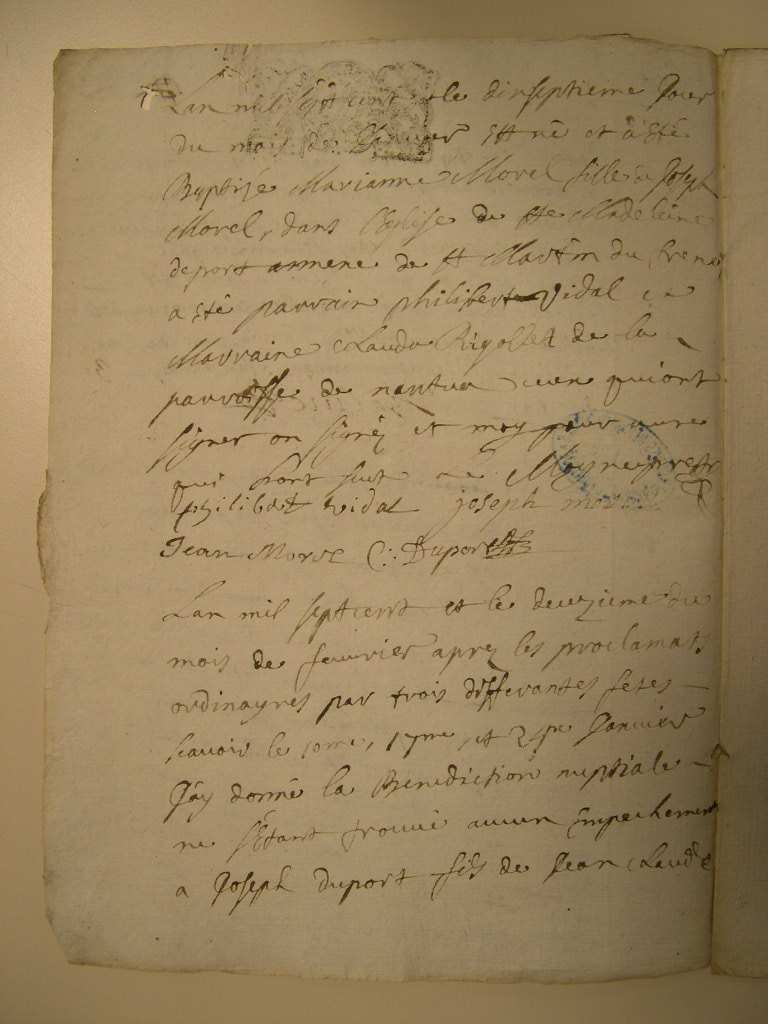 Lan mil sept cent et le dixseptieme Jour
du mois de Janvier Est né et a esté
Baptisée Marianne Morel fille a Joseph
Morel, dans l'Eglise de Ste Madeleine
de port annexe de St Martin du frene
a esté parrain philibert Vidal et
Marraine Clauda Rigollet de la
parroisse de nantua ceux qui ont
signer on signéz et moy pour cure
qui Moyne prestre
philibert vidal joseph morel
Jean Morel C: Duport
Lan mil sept cent et le deuzieme du
mois de feuvrier aprez les proclamats
ordinayres par trois differantes fetes
scavoir le 10me, 17me, et 24me Janvier
J'ay donné la Benediction nuptiale
ne s'Etant trouvé aucun Empechement
a Joseph Duport fils de Jean Claude